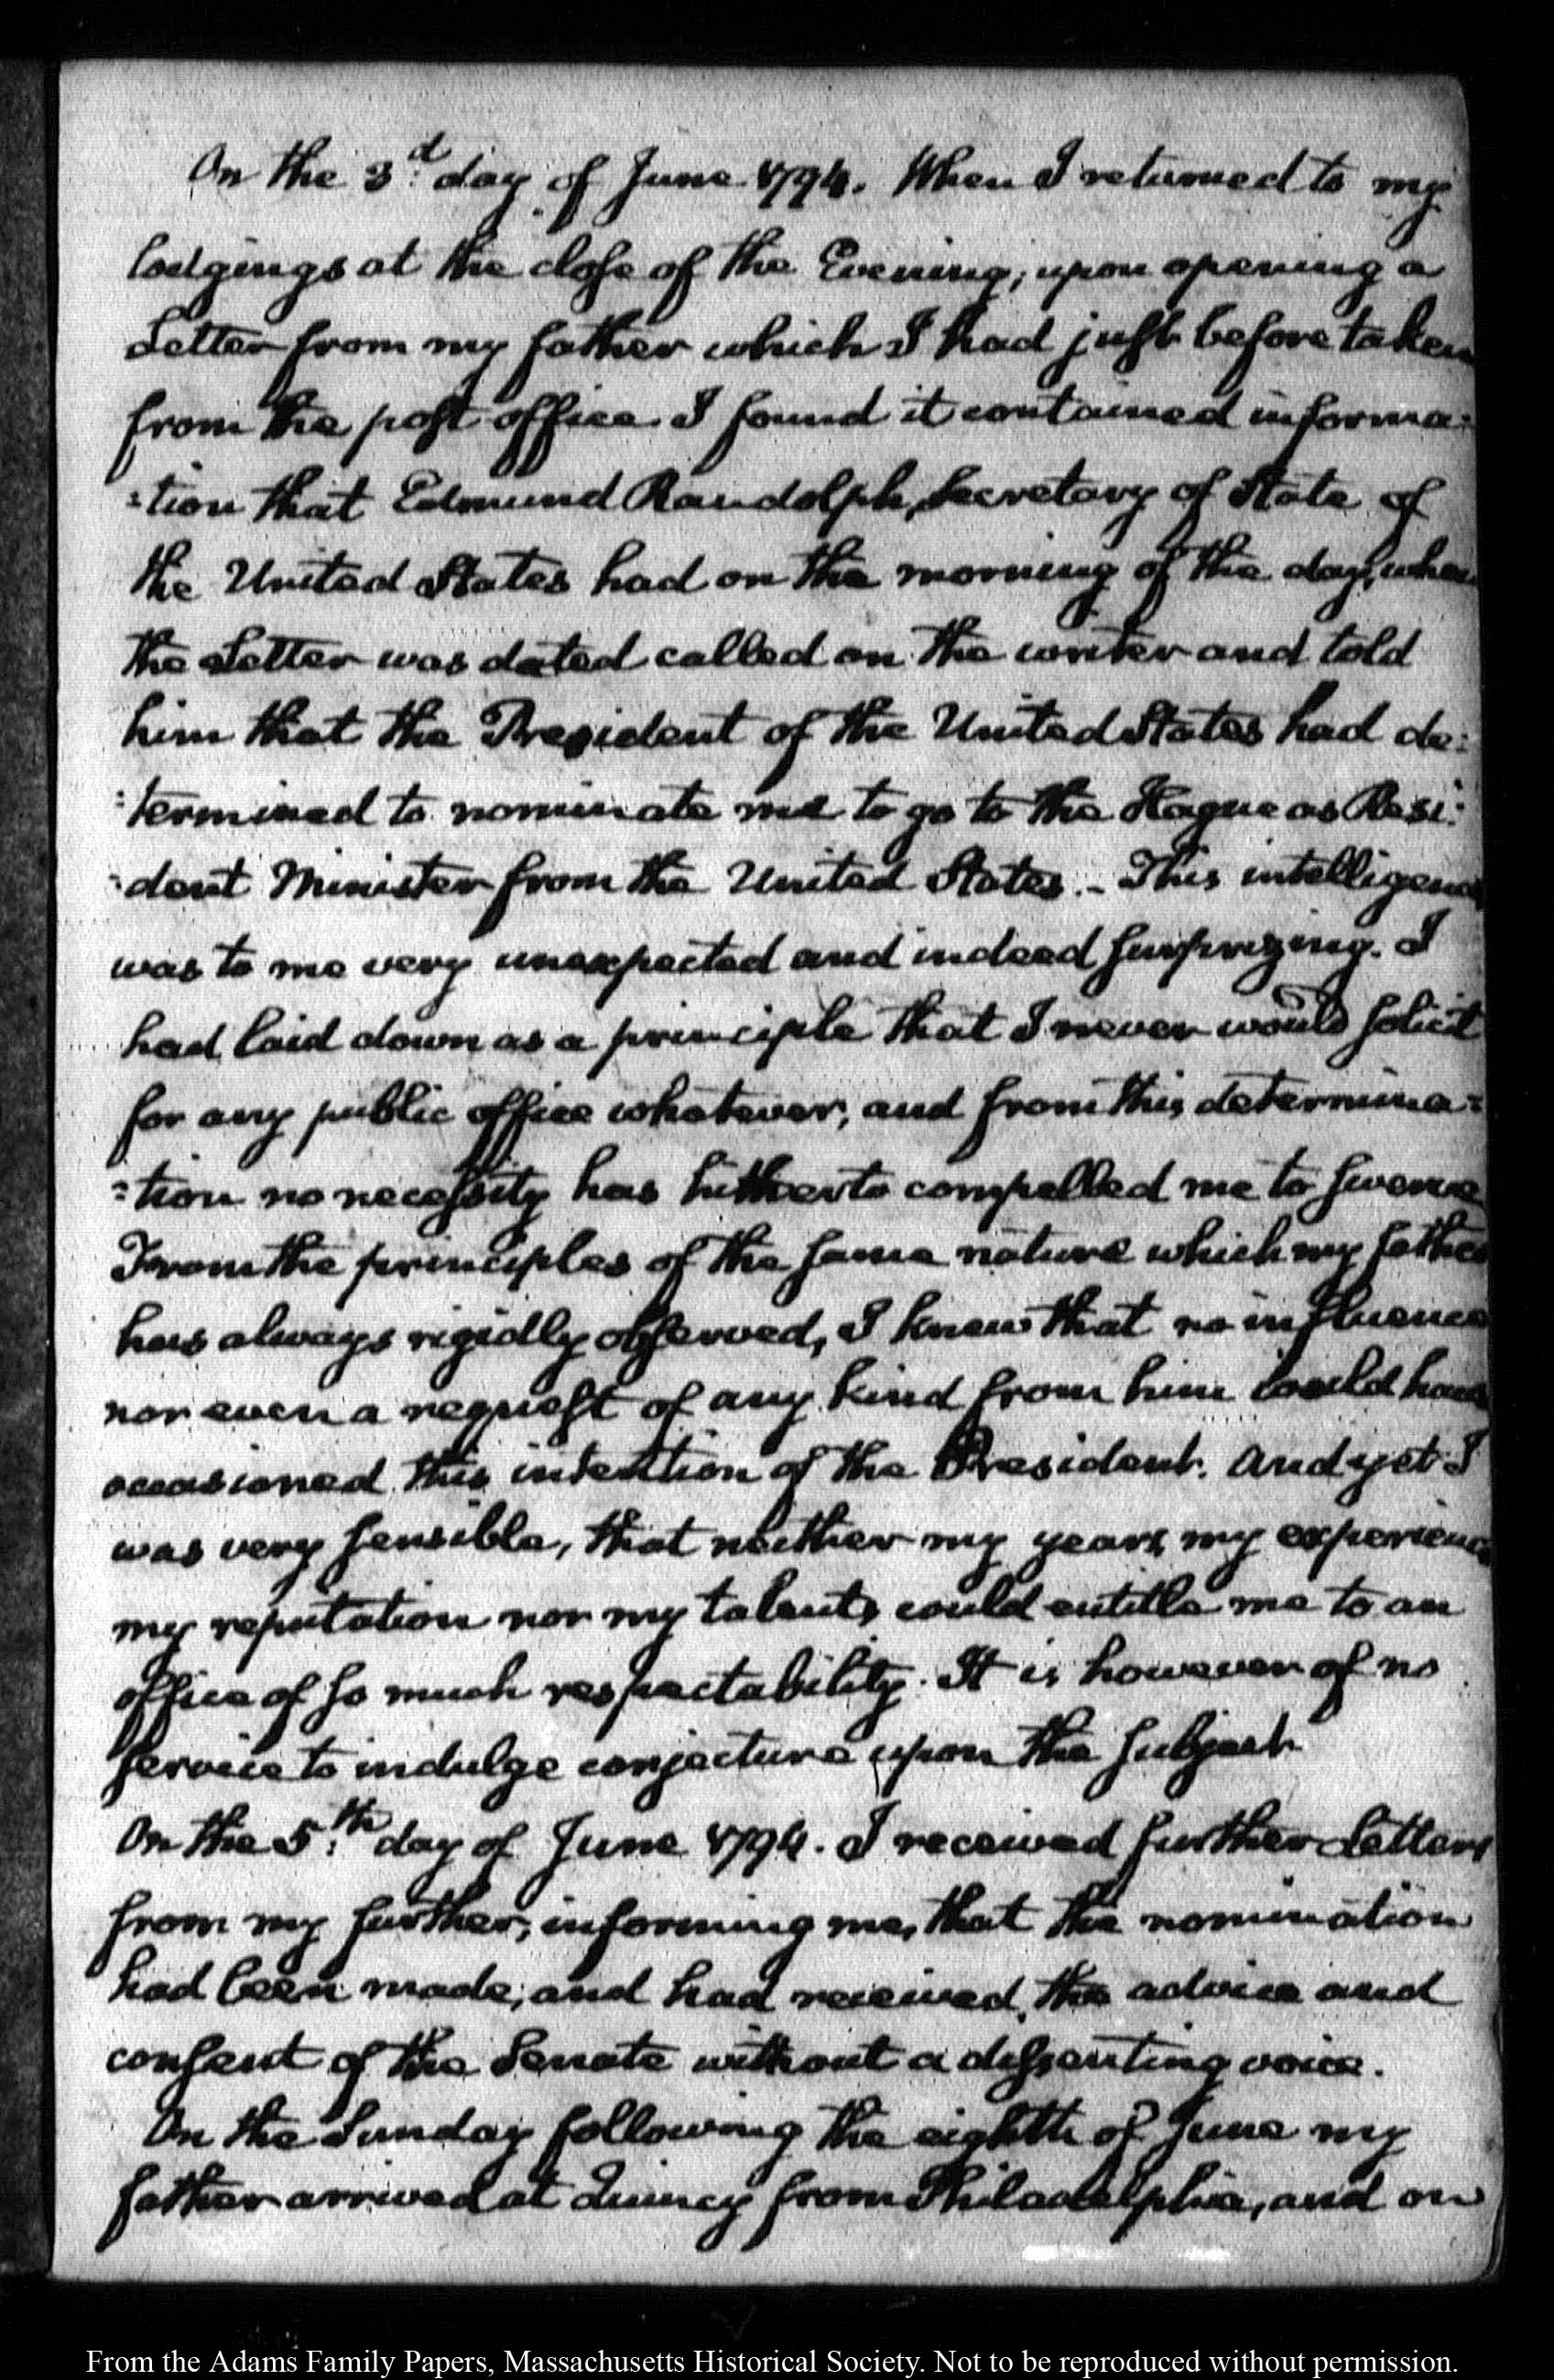 On the 3.d day of June 1794. When I returned to my
lodgings at the close of the Evening, upon opening a
Letter from my father which I had just before taken
from the post-office I found it contained informa:
:tion that Edmund Randolph, Secretary of State of
the United States had on the morning of the day, when
the Letter was dated called on the writer and told
him that the President of the United States had de:
:termined to nominate me to go to the Hague as Resi:
:dent Minister from the United States. – This intelligence
was to me very unexpected and indeed surprizing. I
had laid down as a principle that I never would solicit
for any public office whatever, and from this determina:
:tion no necessity has hitherto compelled me to swerve
From the principles of the same nature which my father
has always rigidly observed, I knew that no influence
nor even a request of any kind from him could have
occasioned this intention of the President. And yet I
was very sensible, that neither my years, my experience
my reputation nor my talents, could entitle me to an
office of so much respectability. It is however of no
service to indulge conjecture upon the subject.
On the 5.th day of June 1794. I received further Letters
from my further, informing me, that the nomination
had been made, and had received, the advice and
consent of the Senate without a dissenting voice.
On the Sunday following the eighth of June my
father arrived at Quincy from Philadelphia, and on
From the Adams Family Papers, Massachusetts Historical Society. Not to be reproduced without permission.